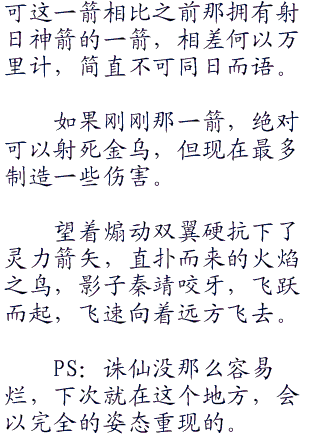 可这一箭相比之前那拥有射
日神箭的一箭，相差何以万
里计，简直不可同日而语。
如果刚刚那一箭，绝对
可以射死金乌，但现在最多
制造一些伤害。
望着煽动双翼硬抗下了
灵力箭矢，直扑而来的火焰
之鸟，影子秦靖咬牙，飞跃
而起，飞速向着远方飞去。
PS：诛仙没那么容易
烂，下次就在这个地方，会
以完全的姿态重现的。